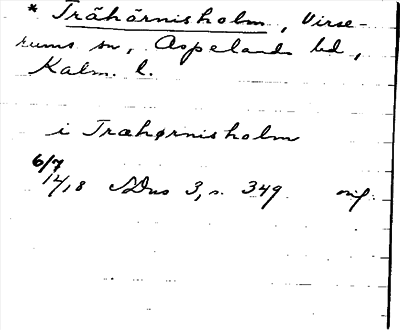 * Trähörnisholm, Virse-
rums sn, Aspelands hd,
Kalm. l.
i Træhørnisholm
6/7
1418 SDns 3, s. 349 orig.